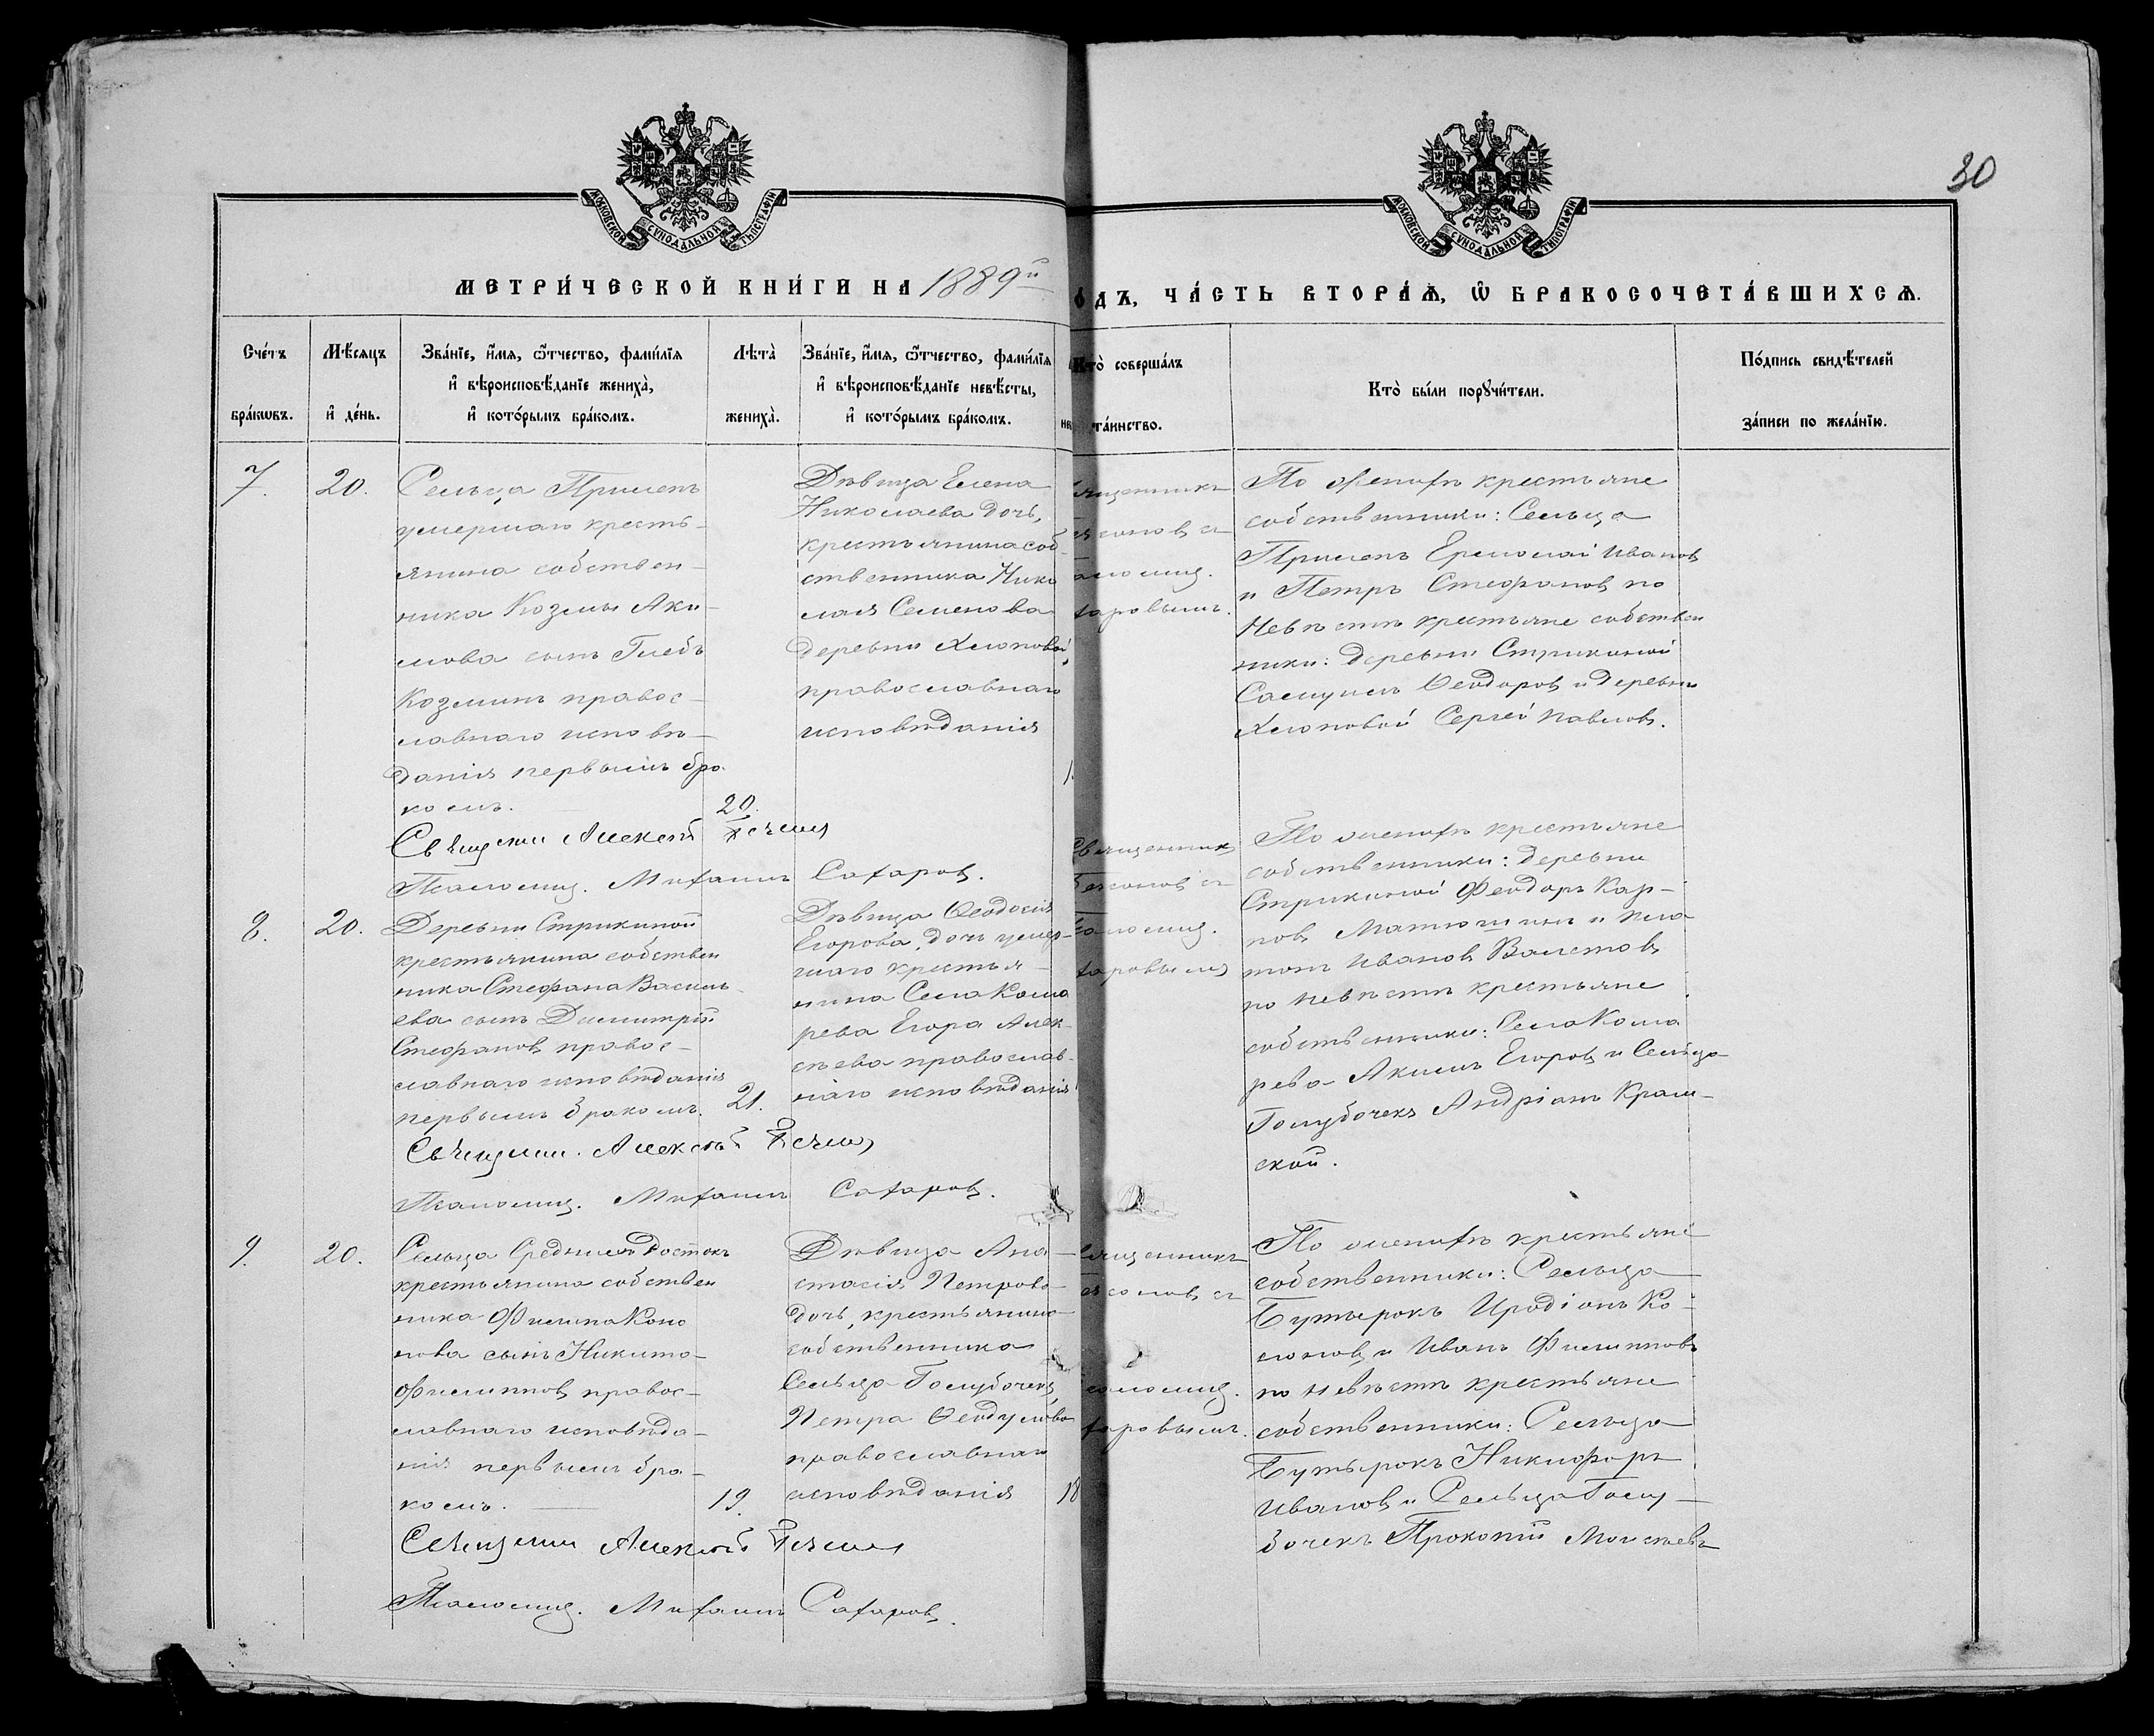 30
МОСКОВСКОЙ СУНОДАЛЬНОЙ ТЫПОГРАФІИ
МОСКОВСКОЙ СУНОДАЛЬНОЙ ТИПОГРАФІИ
МЕТРИ́ЧЕСКОЙ КНИ́ГИ НА 1889й
ОДЪ, ЧА́СТЬ ВТОРА́Ѧ, Ѡ БРАКОСОЧЕТА́ВШИХСѦ.
Сче́тъ бра́кѡвъ.
Мѣ́сяцъ и҆ де́нь.
Зва́нїе, и҆́мя, ѻ҆́тчество, фами́лїя
и҆ вѣроисповѣ́данїе жениха̀,
и҆ кото́рымъ бра́комъ.
Лѣта̀ жениха̀.
Зва́нїе, и҆́мя, ѻ҆́тчество, фами́лїя
и҆ вѣроисповѣ́данїе невѣ́сты,
и҆ кото́рымъ бра́комъ.
Кто̀ соверша́лъ
та́инство.
Кто̀ бы́ли порꙋчи́тели.
По́дпись свидѣ́телей
за́писи по жела́нїю.
7.
20.
Сельца Прилепъ
умершаго кресть-
янина собствен-
ника Козмы Аки-
мова сынъ Глебъ
Козминъ правос-
лавнаго исповѣ-
данія первымъ бра-
комъ.
20.
Дѣвица Елена
Николаева дочь,
крестьянина соб-
ственника Нико
лая Семенова
деревни Хлоповой,
православнаго
исповѣданія
Священни Алексѣй
Псаломщ. Михаилъ Сахаровъ.
ященникъ
аломщ.
харовымъ.
По женихѣ крестьяне
собственники: Сельца
Прилепъ Ермолай Ивановъ
и Петръ Стефановъ по
невѣстѣ крестьяне собствен
ники: деревни Стрикиной
Самуилъ Ѳеодоровъ и деревни
Хлоповой Сергей Павловъ.
8.
20.
Деревни Стрикиной
крестьянина собствен
ника Стефана Василь-
ева сынъ Димитрій
Стефановъ правос-
лавнаго исповѣданія
первымъ бракомъ.
21.
Дѣвица Ѳеодосія
Егорова, дочь умер-
шаго крестья-
нина Села Кома
рева Егора Алек-
сѣева православ-
наго исповѣданія
Священни. Алексѣй
Псаломщ. Михаилъ Сахаровъ.
Священникъ
аломщ.
харовымъ
По женихѣ крестьяне
собственники: деревни
Стрикиной Феодоръ Кар-
повъ Матюшинъ и Пла
тонъ Ивановъ
по невѣстѣ крестьяне
собственники: Села Кома
рева Акимъ Егоровъ и Сельца
Голубочекъ Андріанъ
ской.
9.
20.
Сельца Средний
крестьянина собствен
ника Филипа Коно
нова сынъ Никита
Филипповъ правос-
лавнаго исповѣда-
нія первымъ бра-
комъ.
19.
Дѣвица Ана-
стасія Петрова
дочь, крестьянина
собственника
Сельца Голубочекъ
Петра Ѳеодулова
православнаго
исповѣданія
18
Священни Алексѣй
Псаломщ. Михаилъ Сахаровъ.
ященникъ
аломщ.
харовымъ.
По женихѣ крестьяне
собственники: Сельца
Бутырокъ Иродіонъ Ко-
ноновъ и Иванъ Филипповъ
по невѣстѣ крестьяне
собственники: Сельца
Бутырокъ Никифоръ
Ивановъ и Сельца Голу-
бочекъ Прокопій Моисеевъ